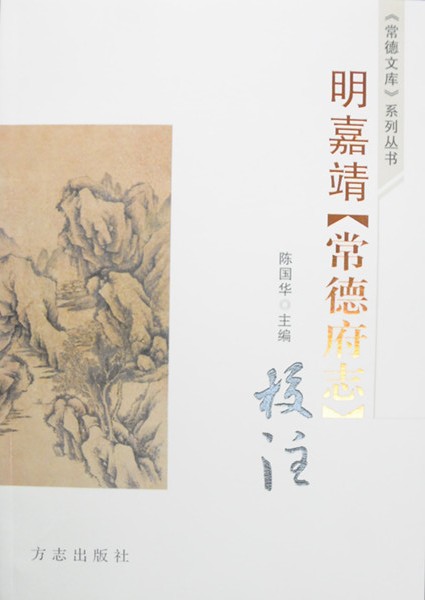 《常德文库》系列丛书
明嘉靖【常德府志】
陈国华◎主编
校注
方志出版社